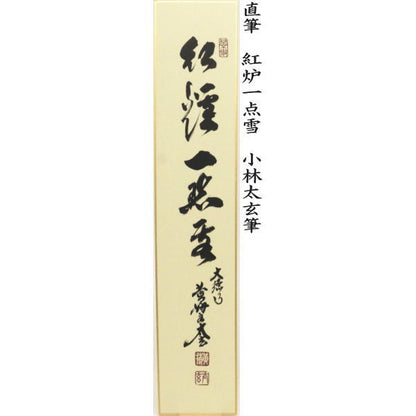 直筆 紅炉一点雪 小林太玄筆
紅爐一點雪
大徳
黄梅太玄